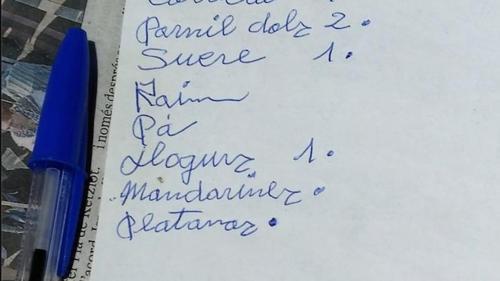 Parnil dolz 2.
Sucre 1.
Raim
Pá
Llogurz 1.
Mandarinez.
Platanoz.
i només després